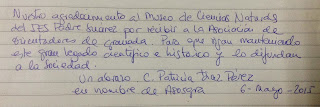 Nuestro agradecimiento al Museo de Ciencias Naturales
del IES Padre Suárez por recibir a la Asociación de
Orientadores de Granada. Para que sigan manteniendo
este gran legado científico e histórico y lo difundan
a la Sociedad.
Un abrazo C. Patricia Díaz Pérez
en nombre de Asosgra 6-Mayo-2015